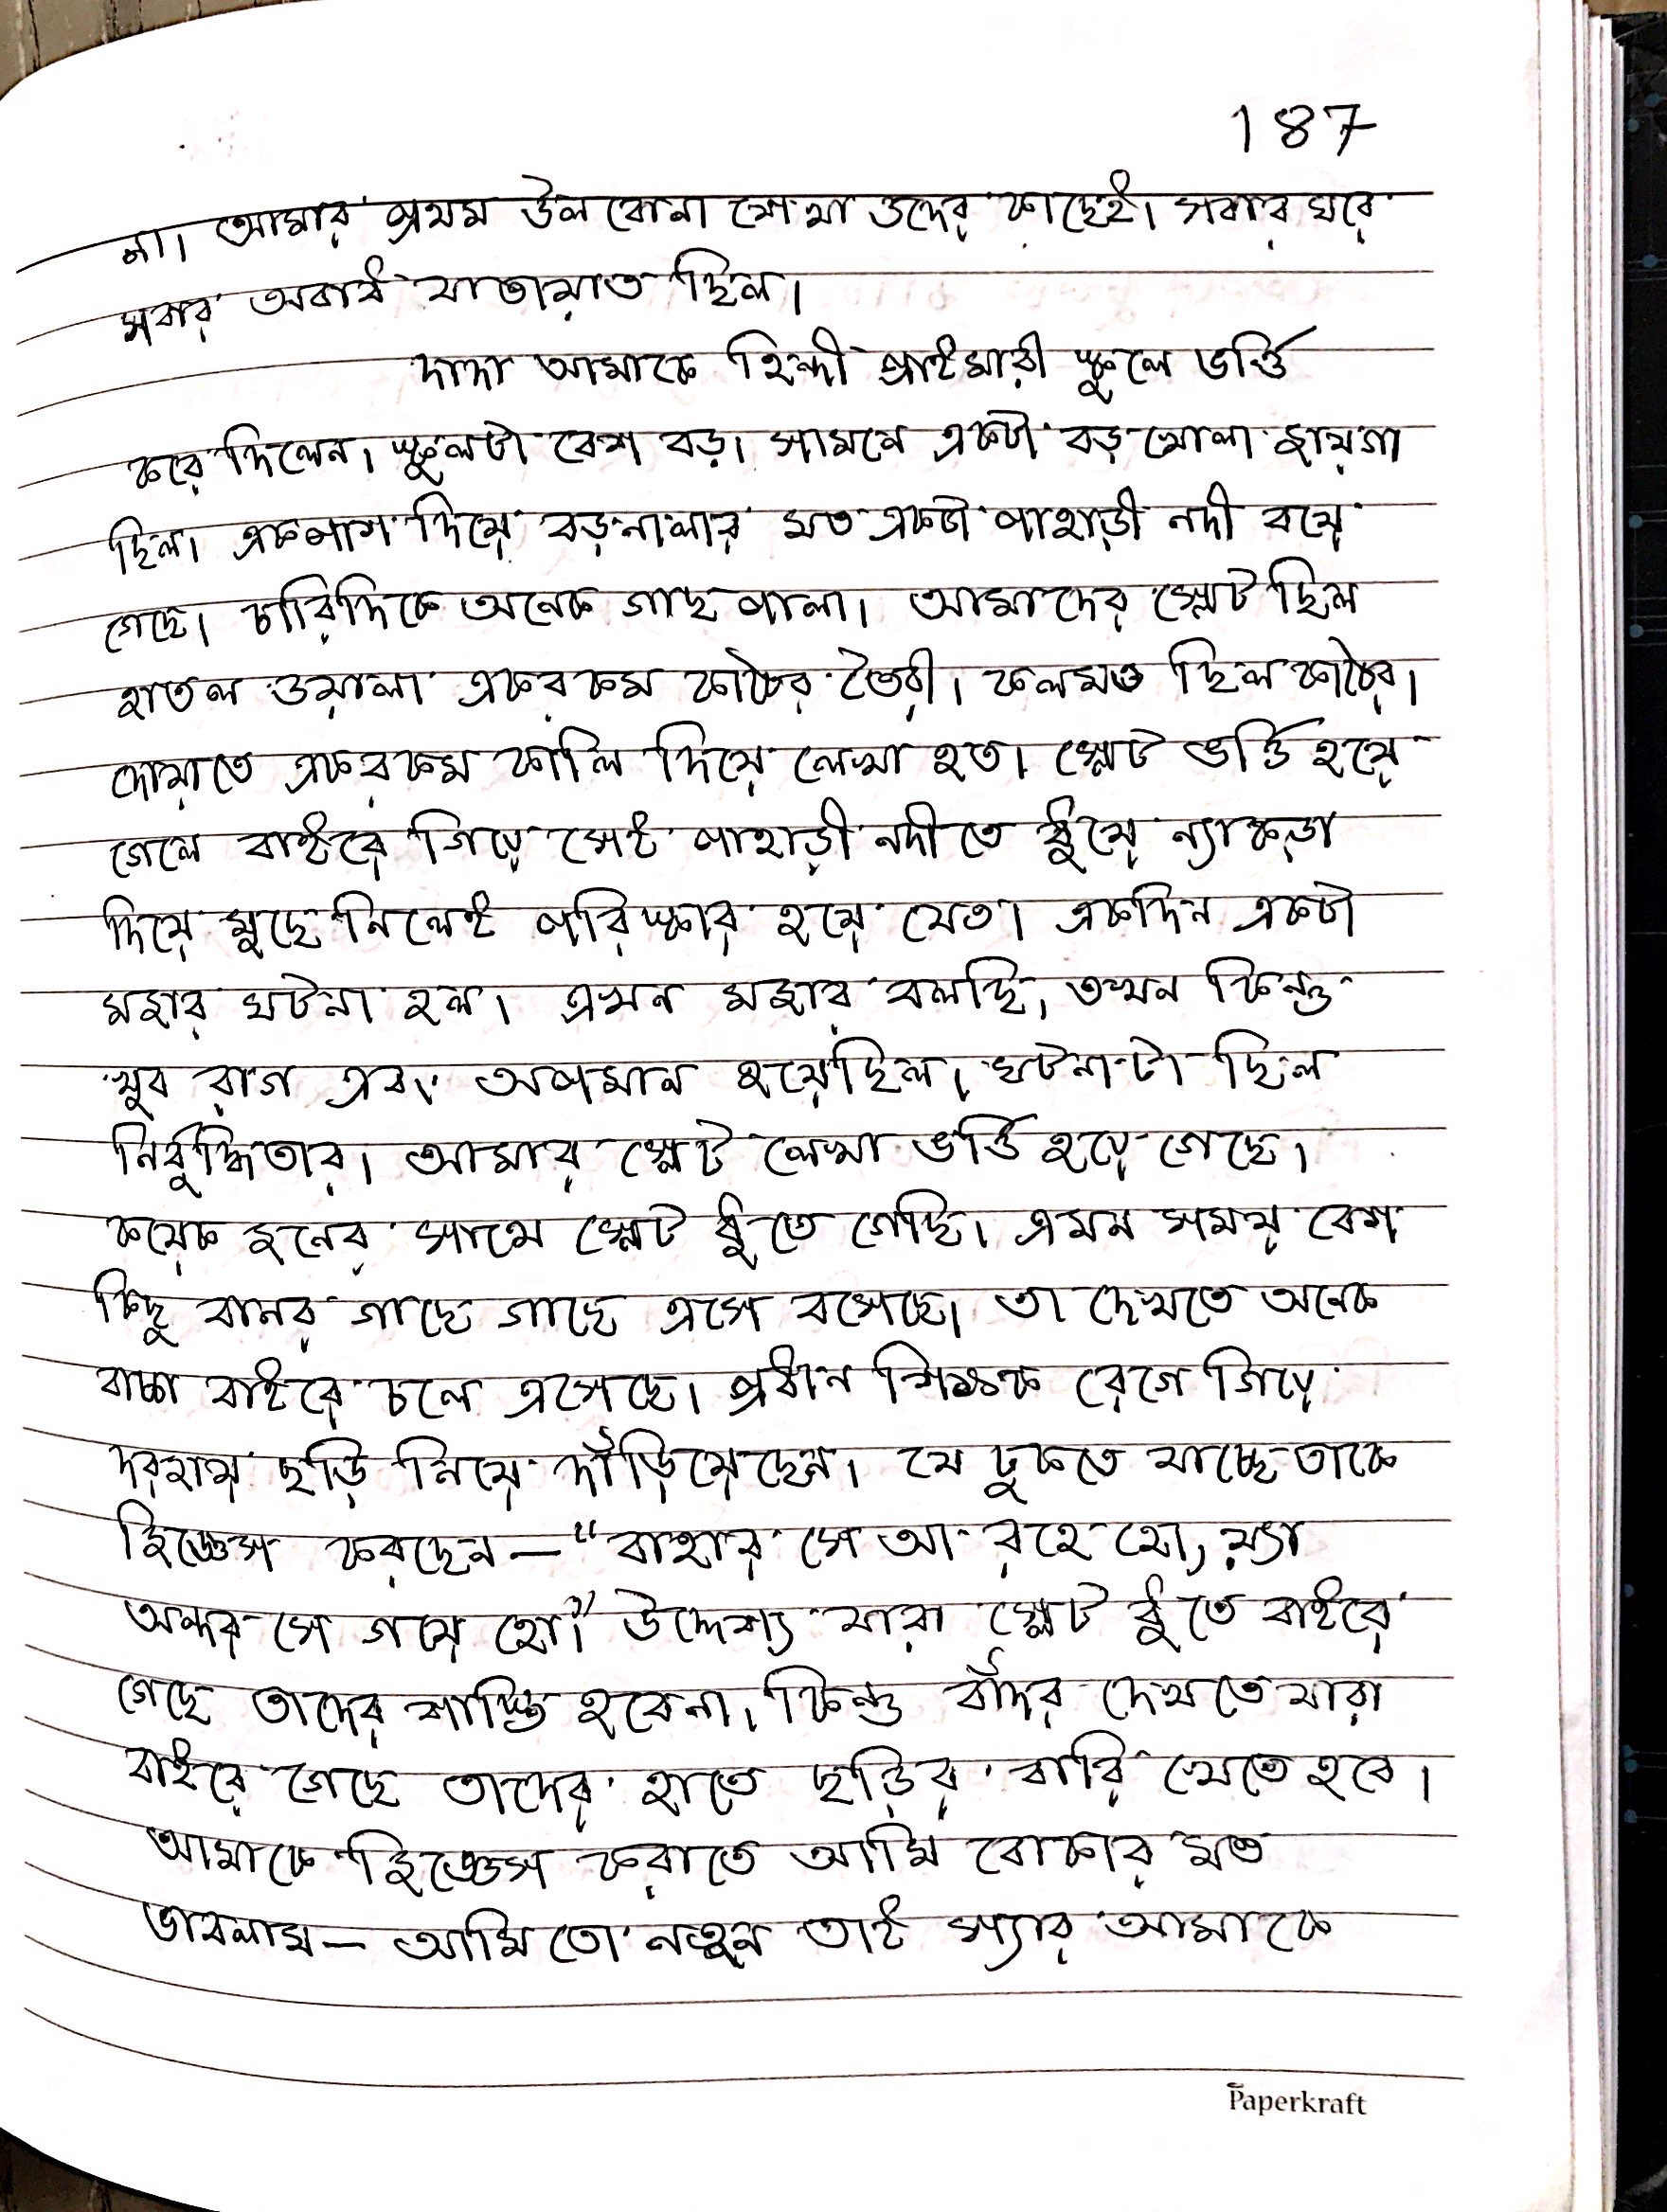 187
না। আমার প্রথম উল বোনা শেখা ওদের কাছেই। সবার ঘরে
সবার অবাধ যাতায়াত ছিল।
দাদা আমাকে হিন্দী প্রাইমারী স্কুলে ভর্ত্তি
করে দিলেন। স্কুলটা বেশ বড়। সামনে একটা বড় খোলা জায়গা
ছিল। একপাশ দিয়ে বড় নালার মত একটা পাহাড়ী নদী বয়ে
গেছে। চারিদিকে অনেক গাছ পালা। আমাদের স্লেট ছিল
হাতল ওয়ালা একরকম কাঠের তৈরী। কলমও ছিল কাঠের।
দোয়াতে একরকম কালি দিয়ে লেখা হত। স্লেট ভর্ত্তি হয়ে
গেলে বাইরে গিয়ে সেই পাহাড়ী নদীতে ধুঁয়ে ন্যাকড়া
দিয়ে মুছে নিলেই পরিস্কার হয়ে যেত। একদিন একটা
মজার ঘটনা হল। এখন মজার বলছি, তখন কিন্তু
খুব রাগ এবং অপমান হয়েছিল। ঘটনাটা ছিল
নির্বুদ্ধিতার। আমার স্লেট লেখা ভর্ত্তি হয়ে গেছে।
কয়েক জনের সাথে স্লেট ধুঁতে গেছি। এমন সময় বেশ
কিছু বানর গাছে গাছে এসে বসেছে। তা দেখতে অনেক
বাচ্চা বাইরে চলে এসেছে। প্রধান শিক্ষক রেগে গিয়ে
দরজায় ছড়ি নিয়ে দাঁড়িয়েছেন। যে ঢুকতে যাচ্ছে তাকে
জিজ্ঞেস করছেন — "বাহার সে আ রহে হো, য়্যা
অন্দর সে গয়ে হো।" উদ্দেশ্য যারা স্লেট ধুঁতে বাইরে
গেছে তাদের শাস্তি হবেনা। কিন্তু বাঁদর দেখতে যারা
বাইরে গেছে তাদের হাতে ছড়ির বারি খেতে হবে।
আমাকে জিজ্ঞেস করাতে আমি বোকার মত
ভাবলাম — আমি তো নতুন তাই স্যার আমাকে
Paperkraft